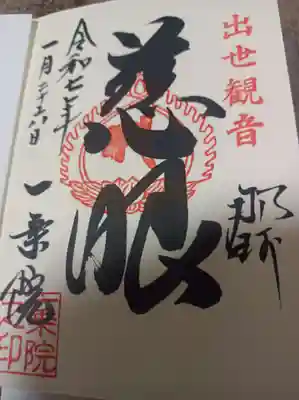 出世観音
慈眼
令和七年
一月二十六日
一乗院
一乗院
之印